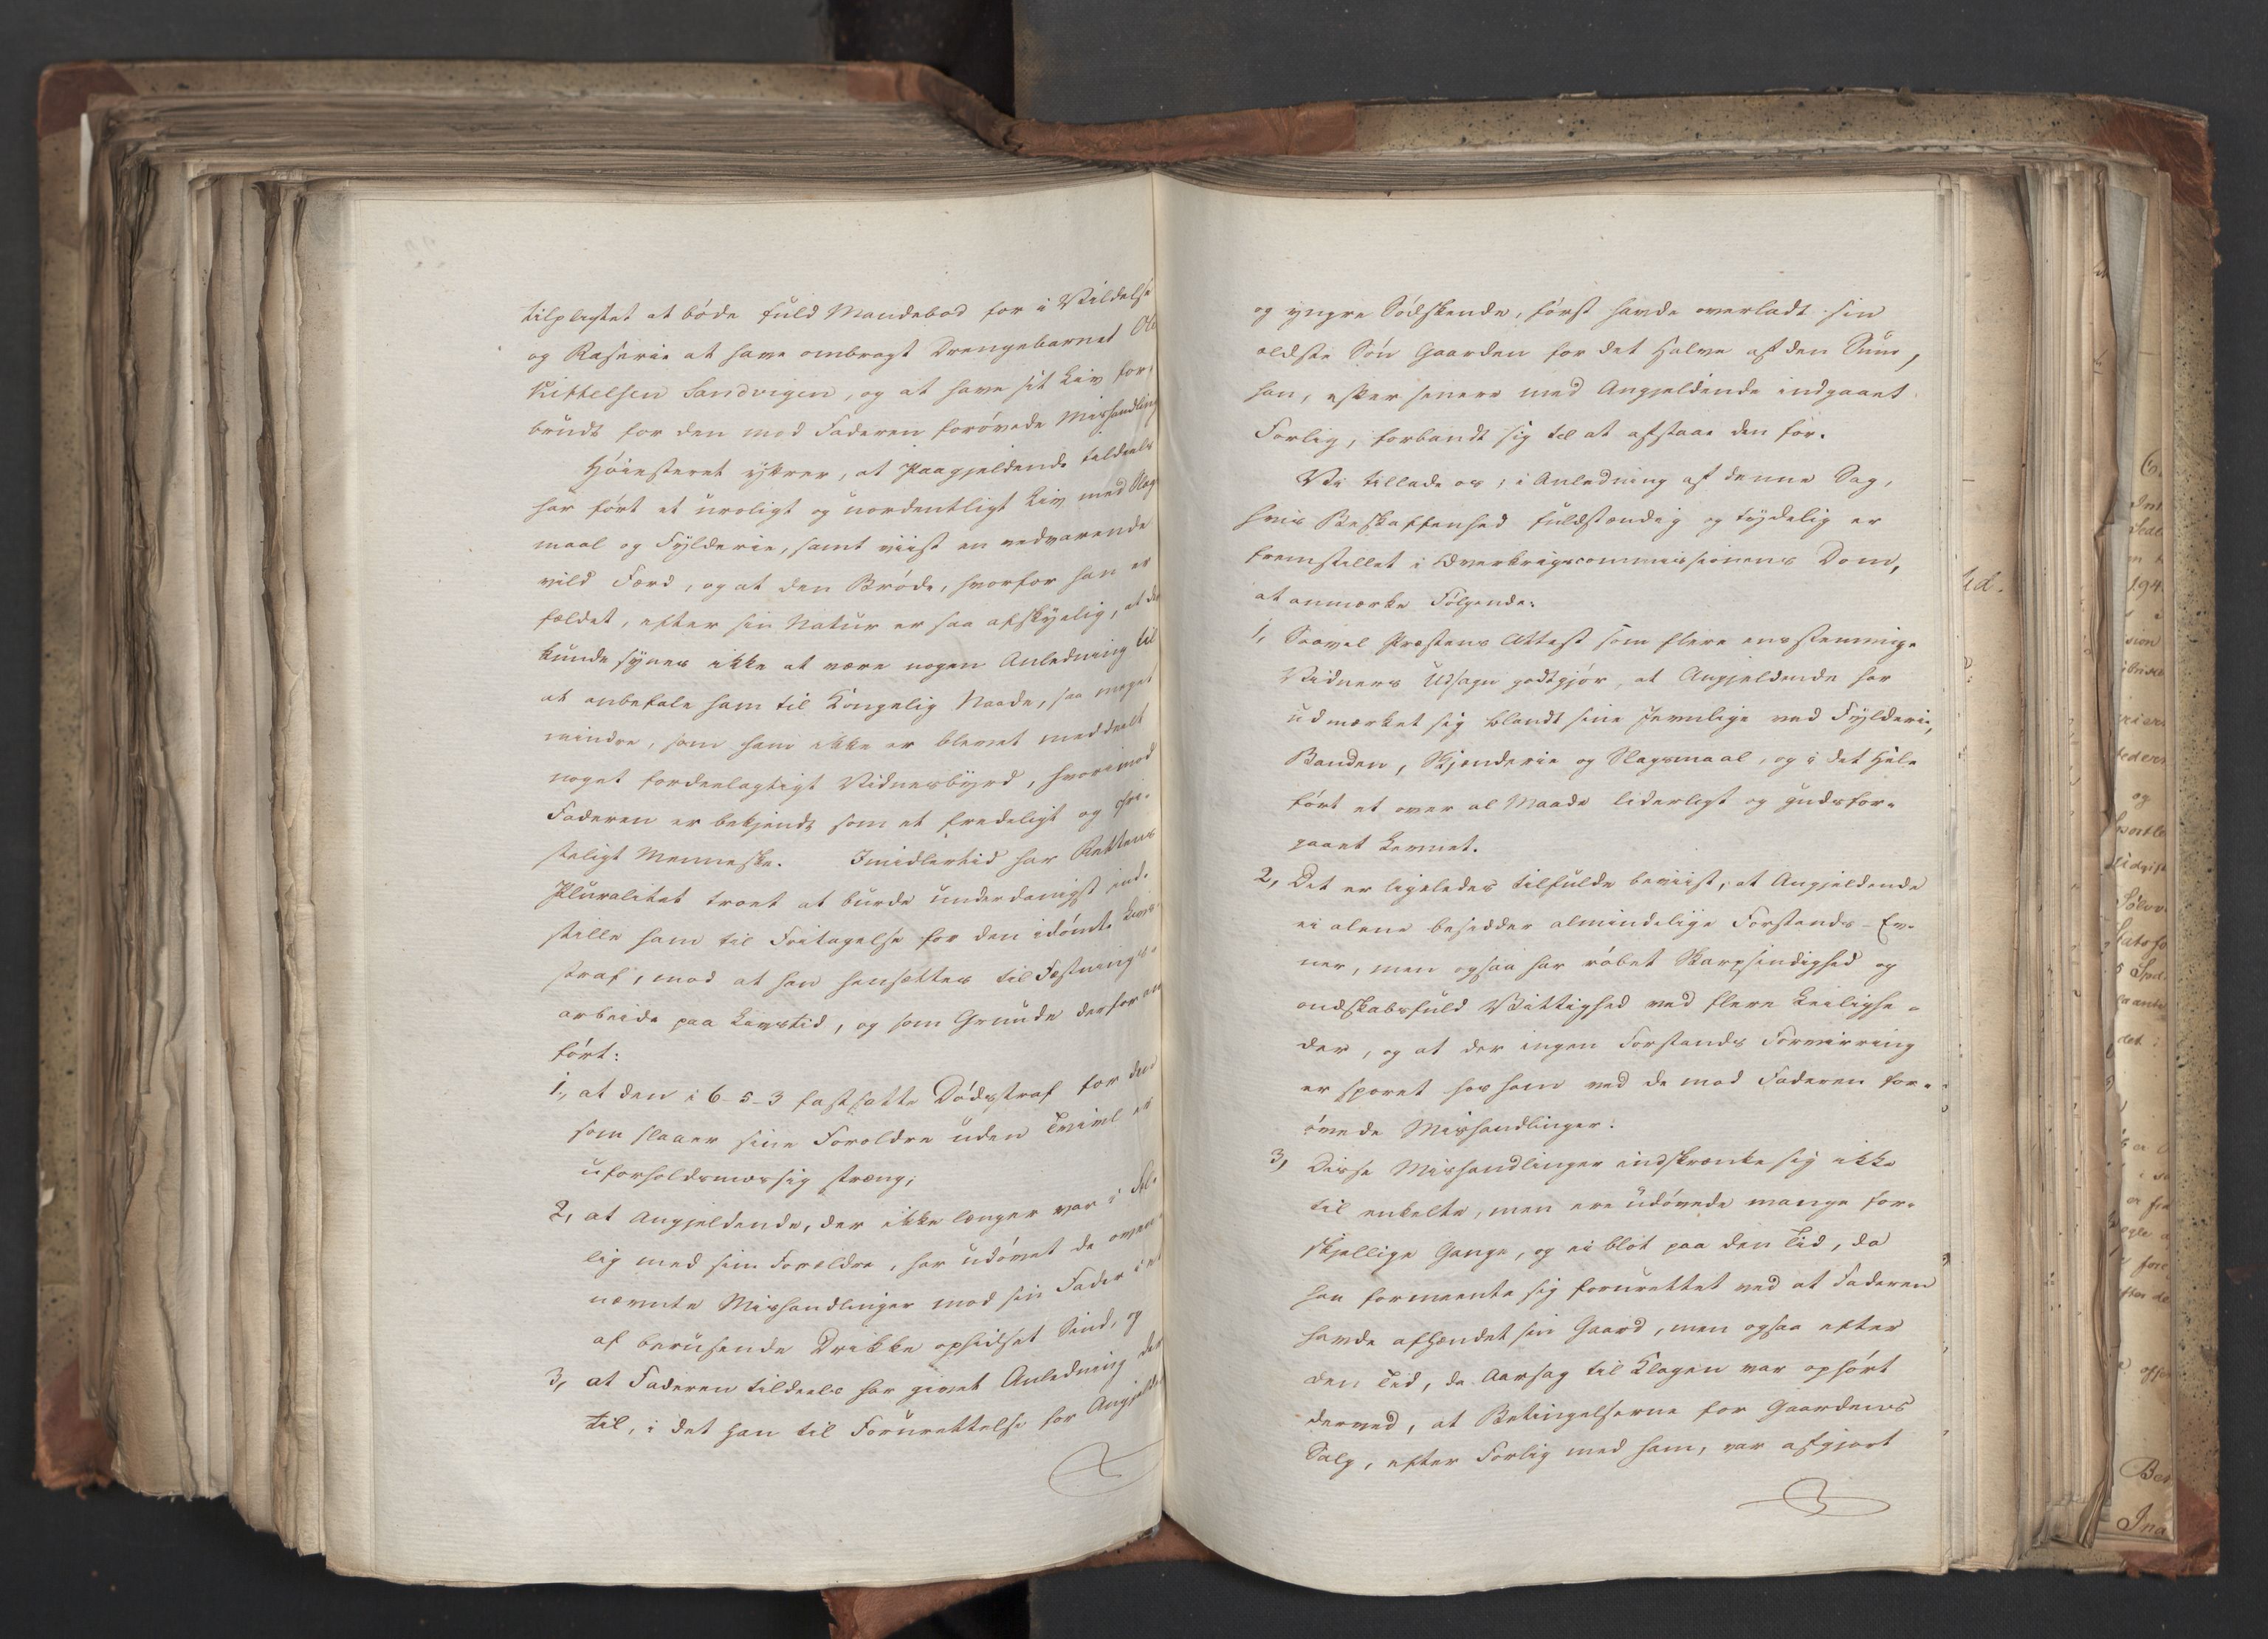 tilpligtet at böde fuld Mandebod for i Vildelse
og Raserie at have ombragt Drengebarnet Ole
Kittelsen Sandvigen, og at have sit Liv for-
brudt for den mod Faderen forövede Mishandling
Höiesteret yttrer, at Paagjeldende tildeels
har fört et uroligt og uordentligt Liv med Slags-
maal og Fylderie, samt viist en vedvarende
vild Færd, og at den Bröde, hvorfor han er
fældet, efter sin Natur er saa afskyelig, at der
kunde synes ikke at være nogen Anledning til
at anbefale ham til Kongelig Naade, saa meget
mindre, som ham ikke er blevet meddeelt
noget fordeelagtigt Vidnesbyrd, hvorimod
Faderen er bekjendt som et fredeligt og chri-
steligt Menneske. Imidlertid har Rettens
Pluralitet troet at burde underdanigst ind-
stille ham til Fritagelse for den idömte Livs-
straf, mod at han hensættes til Fæstnings-
arbeide paa Livstid, og som Grunde derfor an-
fört:
1, at den i 6-5-3 fastsatte Dödsstraf for den
som slaaer sine Forældre uden Tvivl er
uforholdsmæssig streng;
2, at Angjeldende, der ikke længer var i Fæl-
lig med sine Forældre, har udövet de oven-
nævnte Mishandlinger mod sin Fader i et
af berusende Drikke ophidset Sind, og
3, at Faderen tildeels har givet Anledning der-
til, i det han til Forurettelse for Angjeldende
og yngre Södskende, först havde overladt sin
ældste Sön Gaarden for det Halve af den Sum,
han, efter senere med Angjeldende indgaaet
Forlig, forbandt sig til at afstaae den for.
Vi tillade os, i Anledning af denne Sag,
hvis Beskaffenhed fuldstændig og tydelig er
fremstillet i Overkrigscommissionens Dom,
at anmærke Fölgende:
1, Saavel Præstens Attest som flere eensstemmige
Vidners Udsagn godtgjör, at Angjeldende har
udmærket sig blandt sine Jevnlige ved Fylderie,
Banden, Skjenderie og Slagsmaal, og i det Hele
fört et over al Maade liderligt og gudsfor-
gaaet Levnet.
2, Det er ligeledes tilfulde beviist, at Angjeldende
ei alene besidder almindelige Forstands-Ev-
ner, men ogsaa har röbet Skarpsindighed og
ondskabsfuld Vittighed ved flere Leilighe-
der, og at der ingen Forstands Forvirring
er sporet hos ham ved de mod Faderen for-
övede Mishandlinger.
3, Disse Mishandlinger indskrænke sig ikke
til enkelte, men ere udövede mange for-
skjellige Gange, og ei blot paa den Tid, da
han formeente sig forurettet ved at Faderen
havde afhændet sin Gaard, men ogsaa efter
den Tid, da Aarsag til Klagen var ophört
derved, at Betingelserne for Gaardens
Salg, efter Forlig med ham, var afgjort